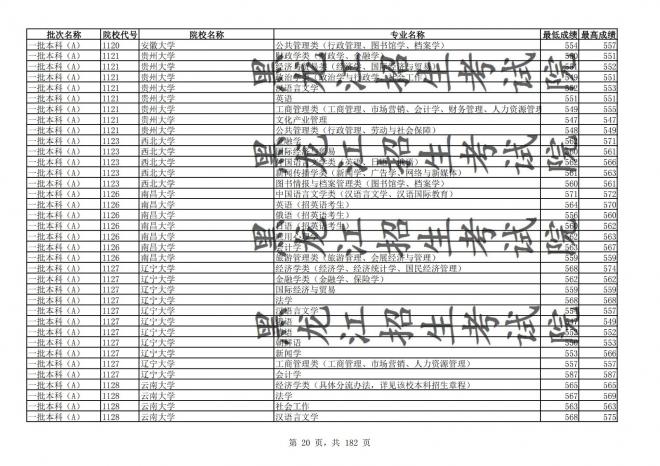 批次名称 院校代号 院校名称 专业名称 最低成绩 最高成绩
一批本科(A) 1120 安徽大学 公共管理类(行政管理、图书馆学、档案学) 554 557
一批本科(A) 1121 贵州大学 551
一批本科(A) 1121 贵州大学 552
一批本科(A) 1121 贵州大学 551
一批本科(A) 1121 贵州大学 汉语言文学 552
一批本科(A) 1121 贵州大学 英语 551 551
一批本科(A) 1121 贵州大学 工商管理类(工商管理、市场营销、会计学、财务管理、人力资源管理 551
一批本科(A) 1121 贵州大学 文化产业管理 547 547
一批本科(A) 1121 贵州大学 公共管理类(行政管理、劳动与社会保障) 548 549
一批本科(A) 1123 西北大学 571
一批本科(A) 1123 西北大学 561
一批本科(A) 1123 西北大学 566
一批本科(A) 1123 西北大学 新闻传播学类(新闻学、广告学、网络与新媒体) 565
一批本科(A) 1123 西北大学 图书情报与档案管理类(图书馆学、档案学) 560 561
一批本科(A) 1126 南昌大学 中国语言文学类(汉语言文学、汉语国际教育) 571 572
一批本科(A) 1126 南昌大学 英语(招英语考生) 564 570
一批本科(A) 1126 南昌大学 俄语(招英语考生) 556 560
一批本科(A) 1126 南昌大学 日语(招英语考生) 562
一批本科(A) 1126 南昌大学 563
一批本科(A) 1126 南昌大学 会计学 567
一批本科(A) 1126 南昌大学 旅游管理类(旅游管理、会展经济与管理) 560
一批本科(A) 1127 辽宁大学 经济学类(经济学、经济统计学、国民经济管理) 568 574
一批本科(A) 1127 辽宁大学 金融学类(金融学、保险学) 562 562
一批本科(A) 1127 辽宁大学 国际经济与贸易 559 559
一批本科(A) 1127 辽宁大学 法学 568 568
一批本科(A) 1127 辽宁大学 汉语言文学 557
一批本科(A) 1127 辽宁大学 549
一批本科(A) 1127 辽宁大学 552
一批本科(A) 1127 辽宁大学 553
一批本科(A) 1127 辽宁大学 新闻学 566
一批本科(A) 1127 辽宁大学 工商管理类(工商管理、市场营销、人力资源管理) 557 557
一批本科(A) 1127 辽宁大学 会计学 587 587
一批本科(A) 1128 云南大学 经济学类(具体分流办法,详见该校本科招生章程) 565 565
一批本科(A) 1128 云南大学 法学 567 569
一批本科(A) 1128 云南大学 社会工作 563 563
一批本科(A) 1128 云南大学 汉语言文学 568 575
黑龙江招生考试院
黑龙江招生考试院
黑龙江招生考试院
第 20 页,共 182 页